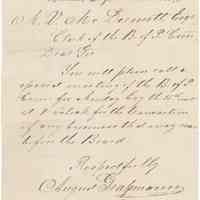 A. V. McDermitt Esq
Clerk of the B of P Com
Dear Sir
You will please call a
special meeting of the B of P
Com for Monday Eve the 10 inst
at 8 o'clock for the transaction
of any business that may come
before the Board
Respectfully
August